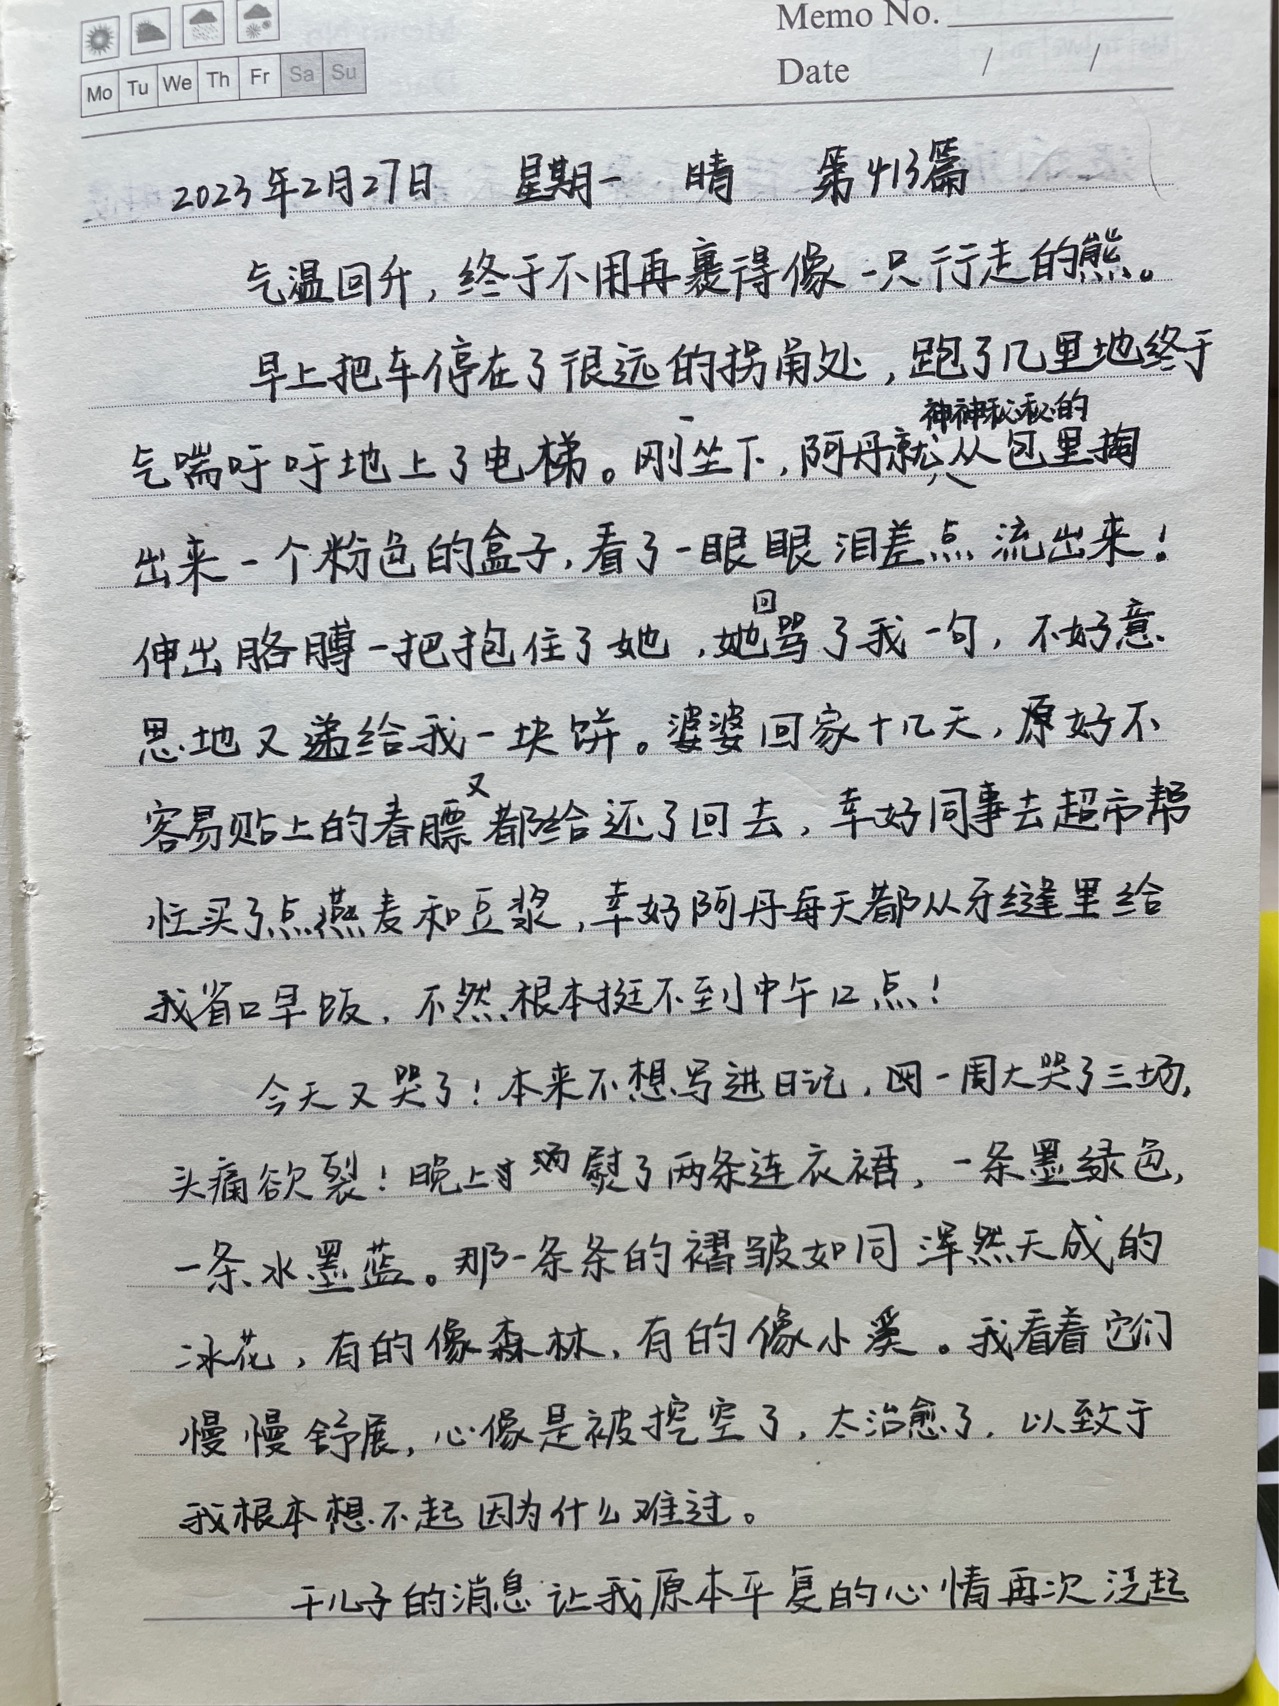 Memo No.
Mo Tu We Th Fr Sa Su
Date / /
2023年2月27日 星期一 晴 第413篇
气温回升，终于不用再裹得像一只行走的熊。
早上把车停在了很远的拐角处，跑了几里地终于
气喘吁吁地上了电梯。刚一坐下，阿丹就神神秘秘的从包里掏
出来一个粉色的盒子，看了一眼眼泪差点流出来！
伸出胳膊一把抱住了她，她回骂了我一句，不好意
思地又递给我一块饼。婆婆回家十几天，原好不
容易贴上的春膘又都给还了回去，幸好同事去超市帮
忙买了点燕麦和豆浆，幸好阿丹每天都从牙缝里给
我省口早饭，不然根本挺不到中午12点！
今天又哭了！本来不想写进日记，一周大哭了三场，
头痛欲裂！晚上熨了两条连衣裙，一条墨绿色，
一条水墨蓝。那一条条的褶皱如同浑然天成的
冰花，有的像森林，有的像小溪。我看着它们
慢慢舒展，心像是被挖空了，太治愈了，以致于
我根本想不起因为什么难过。
干儿子的消息让我原本平复的心情再次泛起